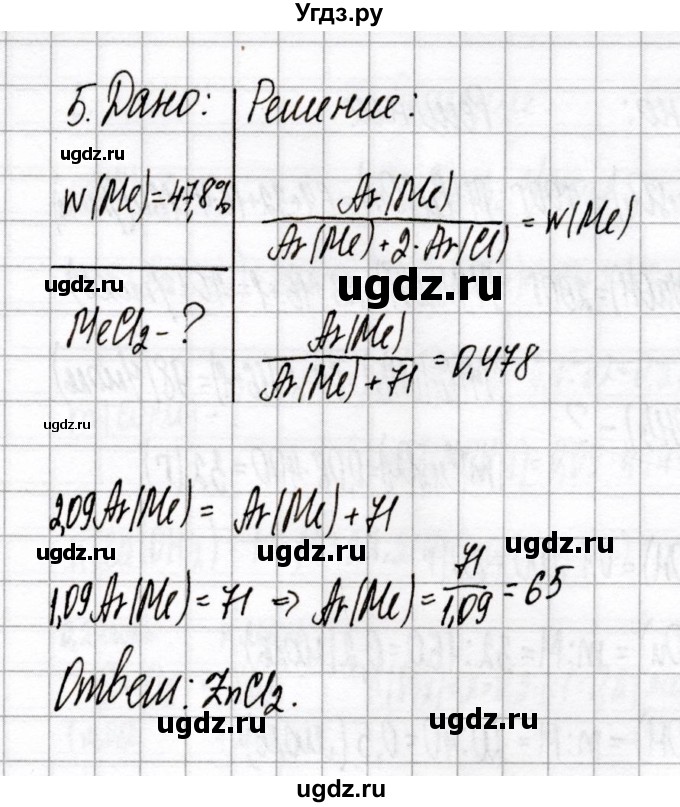 Угдз.ру
5. Дано:
ugdz.ru
w(Me)=47,8%
ugdz.ru
MeCl₂ - ?
ugdz.ru
Решение:
Ar(Me) / (Ar(Me) + 2·Ar(Cl)) = w(Me)
ugdz.ru
Ar(Me) / (Ar(Me) + 71) = 0,478
2,09Ar(Me) = Ar(Me) + 71
ugdz.ru ugdz.ru ugdz.ru
1,09Ar(Me) = 71 => Ar(Me) = 71 / 1,09 = 65
Ответ: ZnCl₂.
ugdz.ru ugdz.ru
ugdz.ru